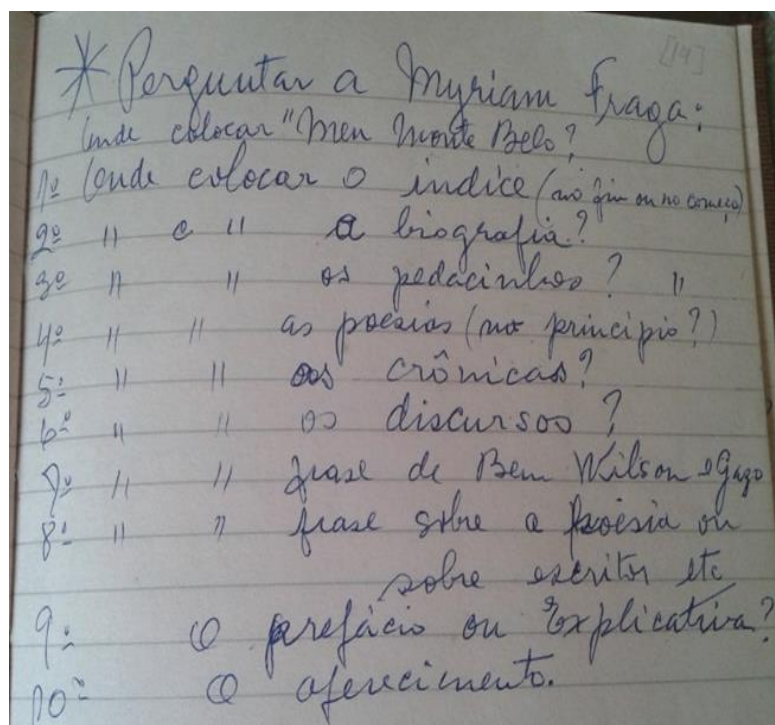 [14]
* Perguntar a Myriam Fraga:
Onde colocar "Meu Monte Belo?
1º Onde colocar o índice (no fim ou no começo)
2º " e " a biografia?
3º " " os pedacinhos? "
4º " " as poesias (no princípio?)
5º " " as crônicas?
6º " " os discursos?
7º " " frase de Bem Wilson e
8º " " frase sobre a poesia ou
sobre escritor etc
9º O prefácio ou Explicativa?
10º O oferecimento.